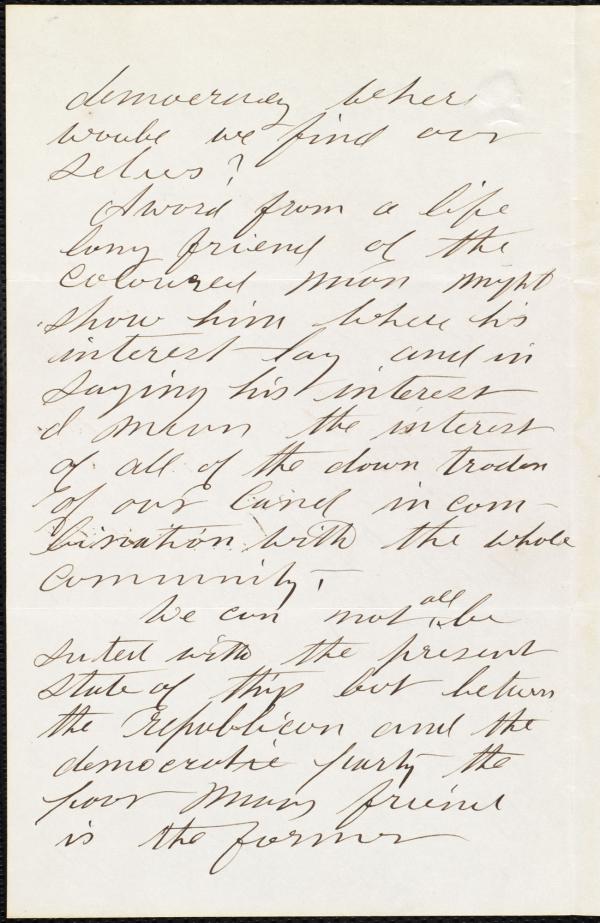 democracy where
would we find our
selves?
A word from a life
long friend of the
coloured man might
show him where his
interest lay and in
saying his interest
I mean the interest
of all of the down troden
of our land in com-
bination with the whole
community, —
We can not all be
suted with the present
state of things but between
the republican and the
democratic party the
poor mans friend
is the former